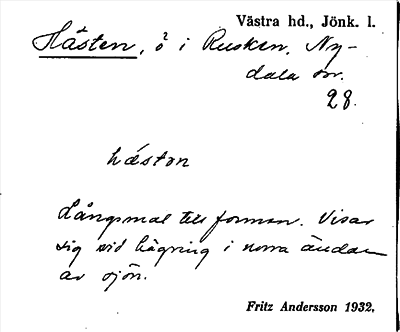 Västra hd., Jönk. l.
Hästen, ö i Rusken, Ny-
dala sn.
28.
hǽston
Långsmal till formen. Visar
sig vid hägring i norra ändan
av sjön.
Fritz Andersson 1932.